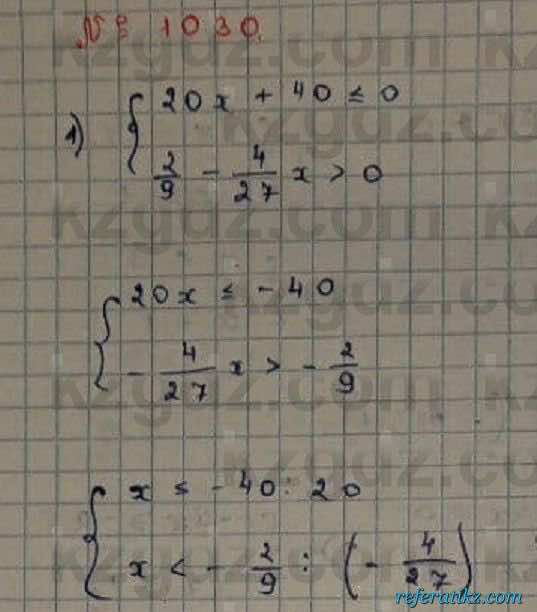 № 1030.
1) { 20x + 40 ≤ 0
2/9 - 4/27 x > 0
{ 20x ≤ -40
- 4/27 x > - 2/9
{ x ≤ -40 : 20
x < - 2/9 : (- 4/27)
kzgdz.com
referatkz.com